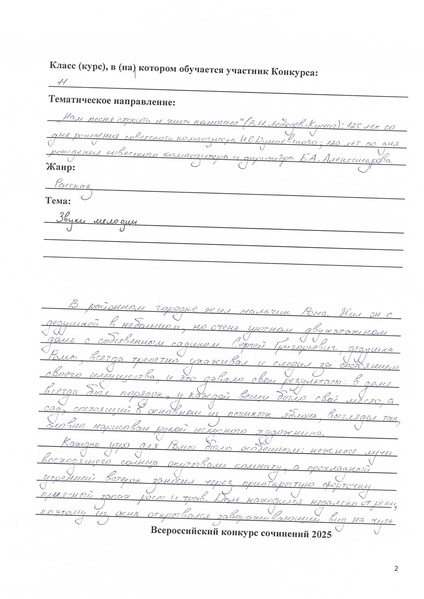 Класс (курс), в (на) котором обучается участник Конкурса:
11
Тематическое направление:
"Нам песня строить и жить помогает" (В.И. Лебедев-Кумач): 125 лет со
дня рождения советского композитора И.О. Дунаевского; 140 лет со дня
рождения советского композитора и дирижёра Б.А. Александрова
Жанр:
Рассказ
Тема:
Звуки мелодии
В районном городке жил мальчик Рома. Жил он с
дедушкой в небольшом, но очень уютном двухэтажном
доме с собственным садиком. Сергей Григорьевич, дедушка
Ромы, всегда трепетно ухаживал и следил за состоянием
своего имущества, и это давало свои результаты: в доме
всегда был порядок, у каждой вещи было своё место, а
сад, состоящий в основном из пышных яблонь, выглядел так,
словно нарисован рукой искусного художника.
Каждое утро для Ромы было особенным: нежные лучи
восходящего солнца окутывали комнату, а прохладный
утренний ветерок заносил через приоткрытую форточку
приятный запах роз и трав. Дом находился недалеко от реки,
поэтому из окна открывался завораживающий вид на чуть
Всероссийский конкурс сочинений 2025
2